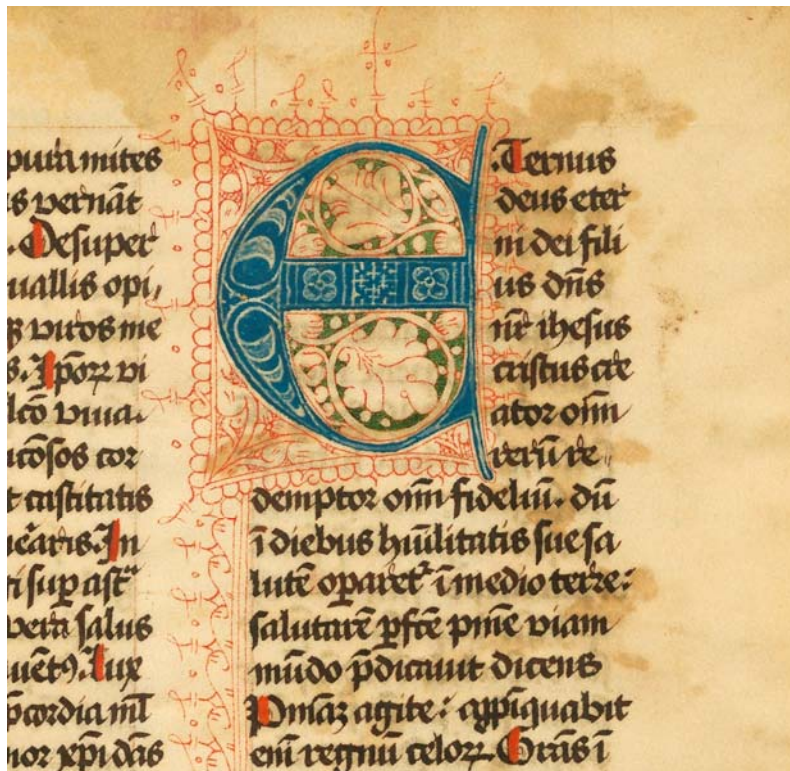 pura mites
s vernāt
. Desuper
uallis opi,
ꝫ viros me
s. Ipoꝝ vi
lcō viua.
icōsos cor
t castitatis
In
ti suꝑ ast
vera salus
uēt9. Lux
p̄cordia ml̄
nor xp̄i dās
E
.Ternus
deus eter
ni dei fili
us dn̄s
nr̄ ihesus
cristus cre
ator om̄
rerū re
demptor om̄ fideliū. dū
ī diebus hūilitatis sue sa
lutē oꝑaret ī medio terre:
salutarē pfcē pnīe viam
mūdo p̄dicauit dicens
Pn̄iaꝫ agite: app̄iquabit
eni regnū celoꝝ. Grās ī